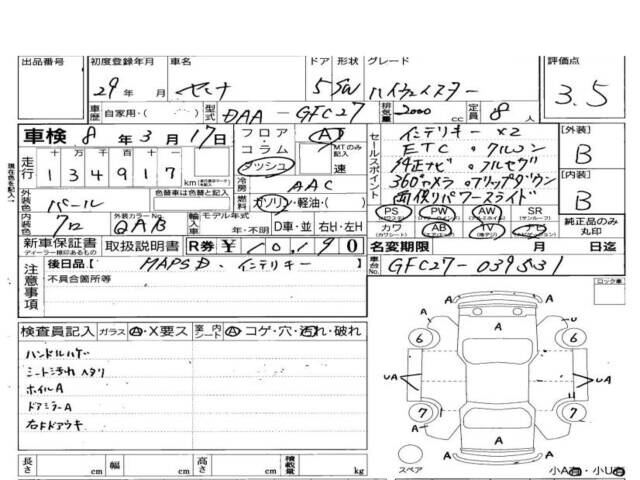 出品番号 初度登録年月 車名 ドア 形状 グレード 評価点
29年 月 セレナ 5 SW ハイウェイスター 3.5
車歴 自家用・( ) 型式 DAA-GFC27 排気量 2000cc 定員 8人
車検 8年3月17日 フロア コラム ダッシュ AT MTのみ記入 速
セールスポイント インテリキー×2 [外装]
ETC・アルミン B
純正ナビ・フルセグ
360°カメラ フリップダウン [内装]
両側パワースライド B
走行 十万 万 千 百 十 一
134917 km
冷房 AAC
外装色 パール 色替車は色替と記入 燃料 ガソリン・軽油・( )
PS PW AW SR
内装色 クロ 外装カラーNo. QAB 輸入車 モデル年式 年・不明 D車・並 右H・左H
カワ AB TV ナビ 純正品のみ丸印
新車保証書 取扱説明書 R券 ¥10,190 名変期限 月 日迄
注意事項 後日品【 MAPSD・インテリキー 】
車台No. GFC27-039531
不具合箇所等
ロック車
検査員記入 ガラス A・X要ス 室内シート A コゲ・穴・汚れ・破れ
ハンドルハゲ
シート汚れ ヘタリ
ホイルA
ドアミラーA
右ドアウキ
A 6 A 6
UA A UA
A 7 A 7 A
スペア 小A有・小U有
長さ cm 幅 cm 高さ cm 積載量 kg
現在色を記入